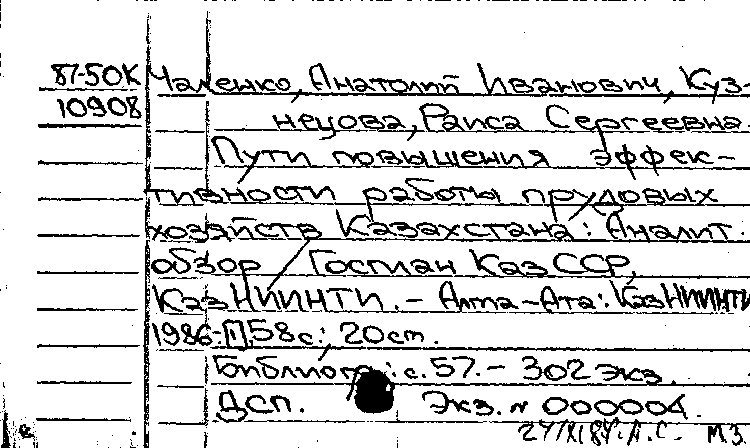 87-50К Чаленко, Анатолий Иванович, Куз-
10908 нецова, Раиса Сергеевна
Пути повышения эффек-
тивности работы прудовых
хозяйств Казахстана: Аналит.
обзор / Госплан Каз ССР,
КазНИИНТИ. - Алма-Ата: КазНИИНТИ
1986. - 58 с.; 20 см.
Библиогр.: с. 57. - 302 экз.
ДСП. Экз. N 000004.
А.С. М.З.